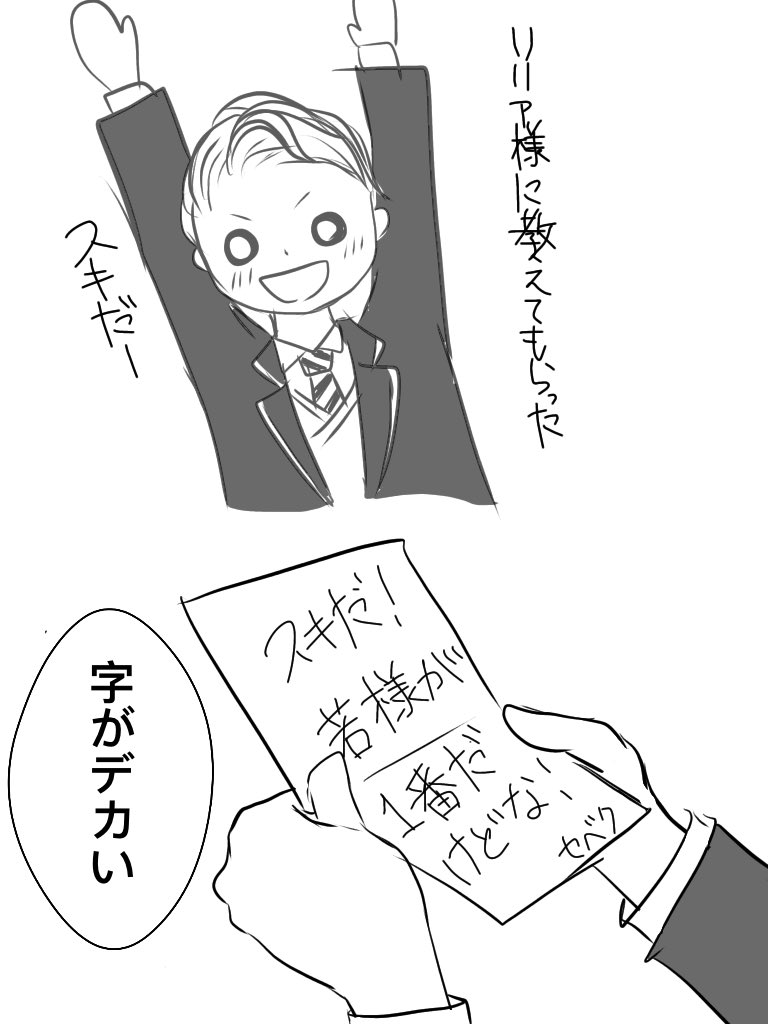 リリア様に教えてもらった
スキだー
スキだ!
若様が
1番だ
けどな!
セベク
字がデカい